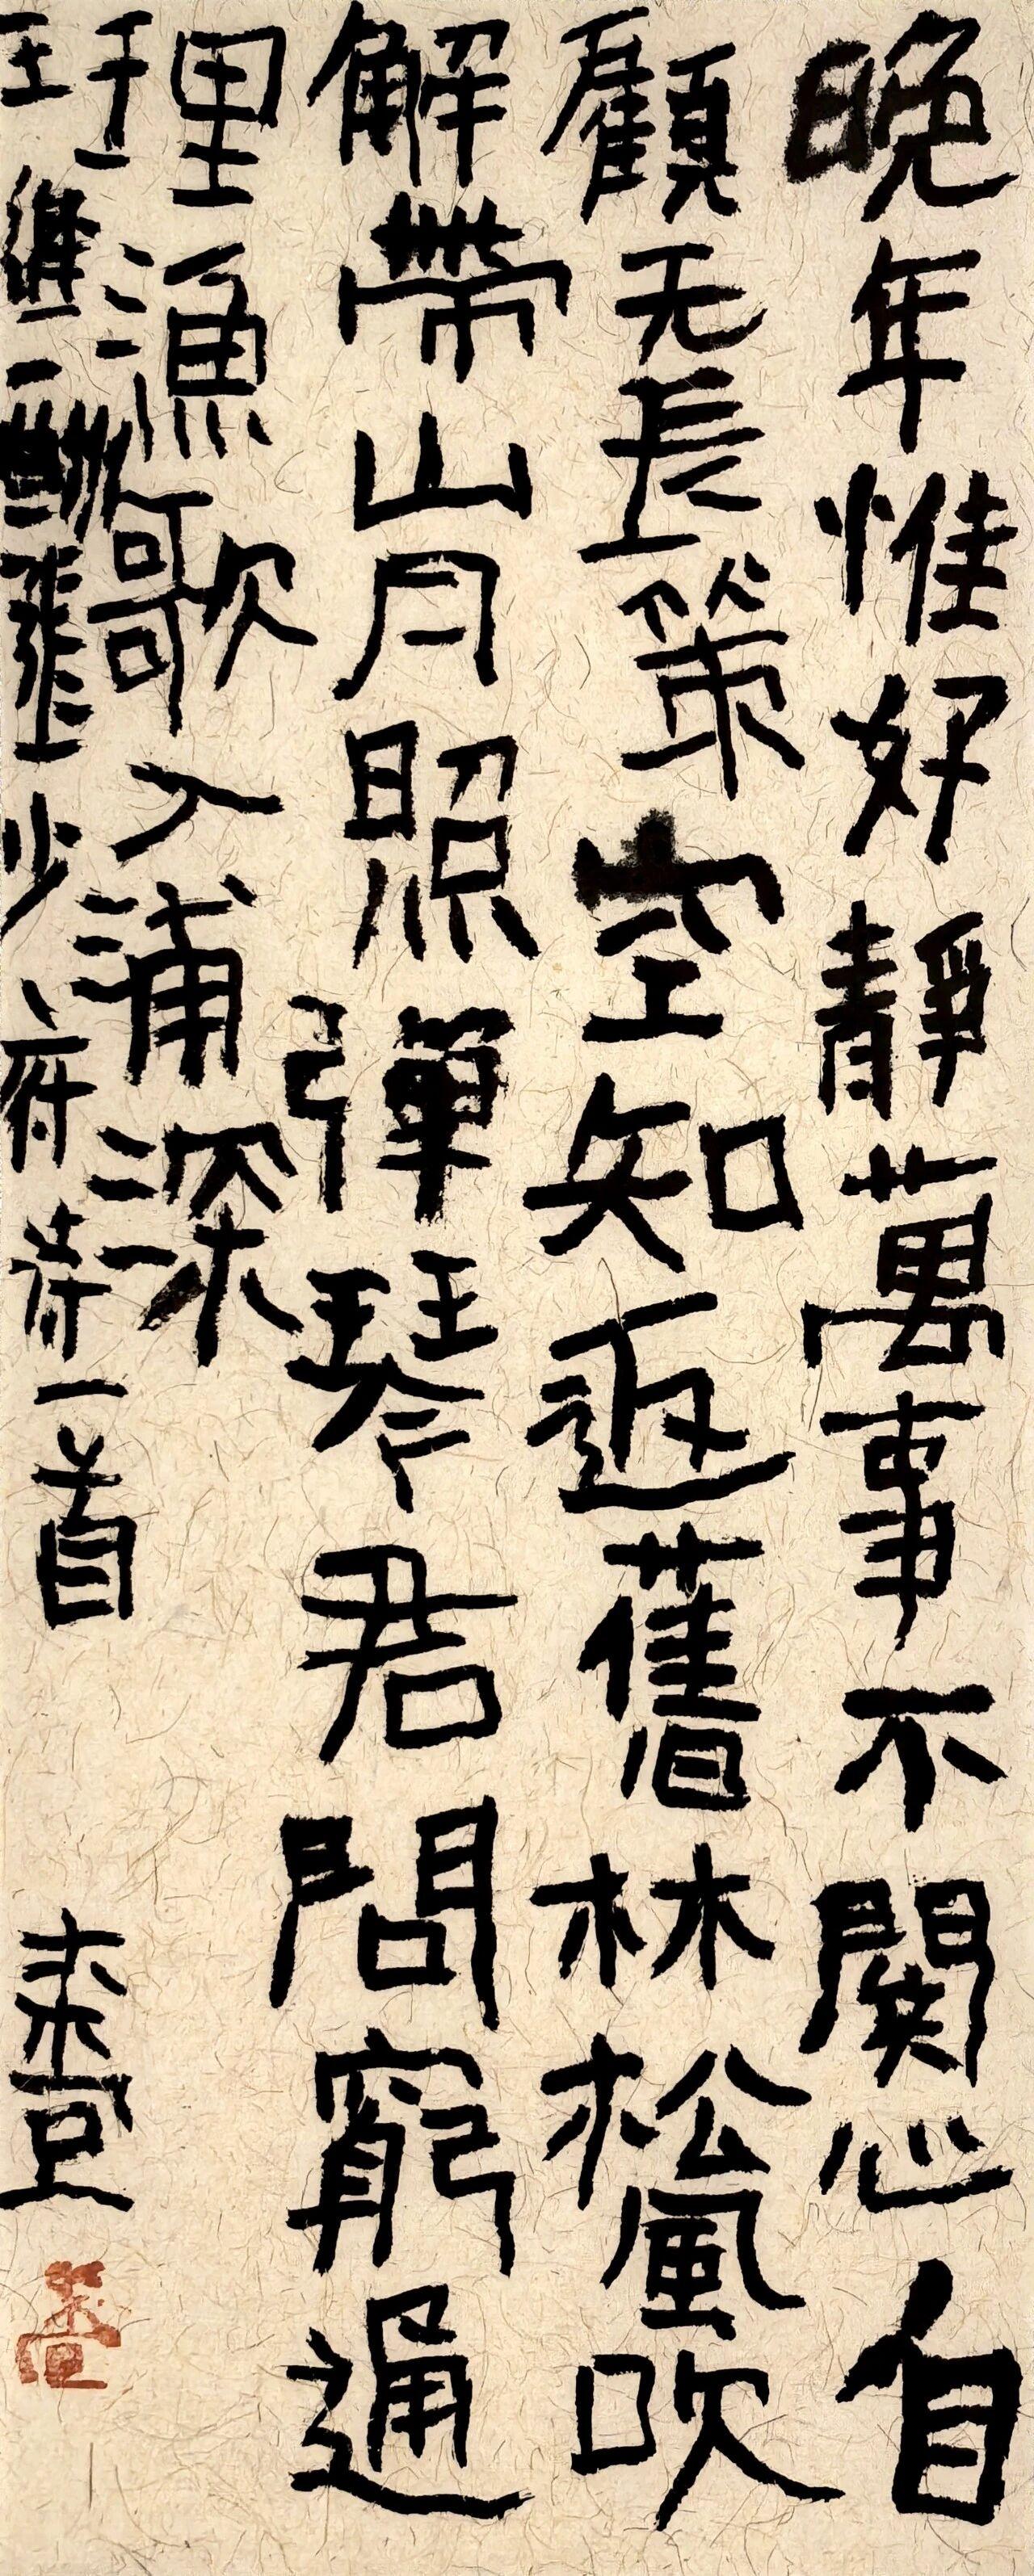 晚年惟好靜萬事不關心自
顧无長策空知返舊林松風吹
解帶山月照彈琴君問窮通
理漁歌入浦深
王維酬張少府詩一首